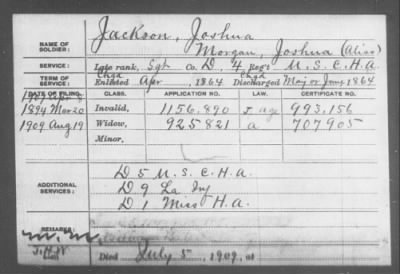 Jackson, Joshua
NAME OF SOLDIER: Morgan, Joshua (Alias)
SERVICE: Late rank, Sgt Co. D, 4 Reg't U.S.C.H.A.
TERM OF SERVICE: Chgd Enlisted Apr, 1864 Chgd Discharged May or June, 1864
DATE OF FILING. CLASS. APPLICATION NO. LAW. CERTIFICATE NO.
1907 Apr 8
1894 Mar 20 Invalid, 1156.890 J age 993.156
1909 Aug 19 Widow, 925821 a 707905
Minor,
D 5 U.S.C.H.A.
ADDITIONAL SERVICES: D 9 La Inf
D 1 Miss H.A.
REMARKS:
Died July 5, 1909, at